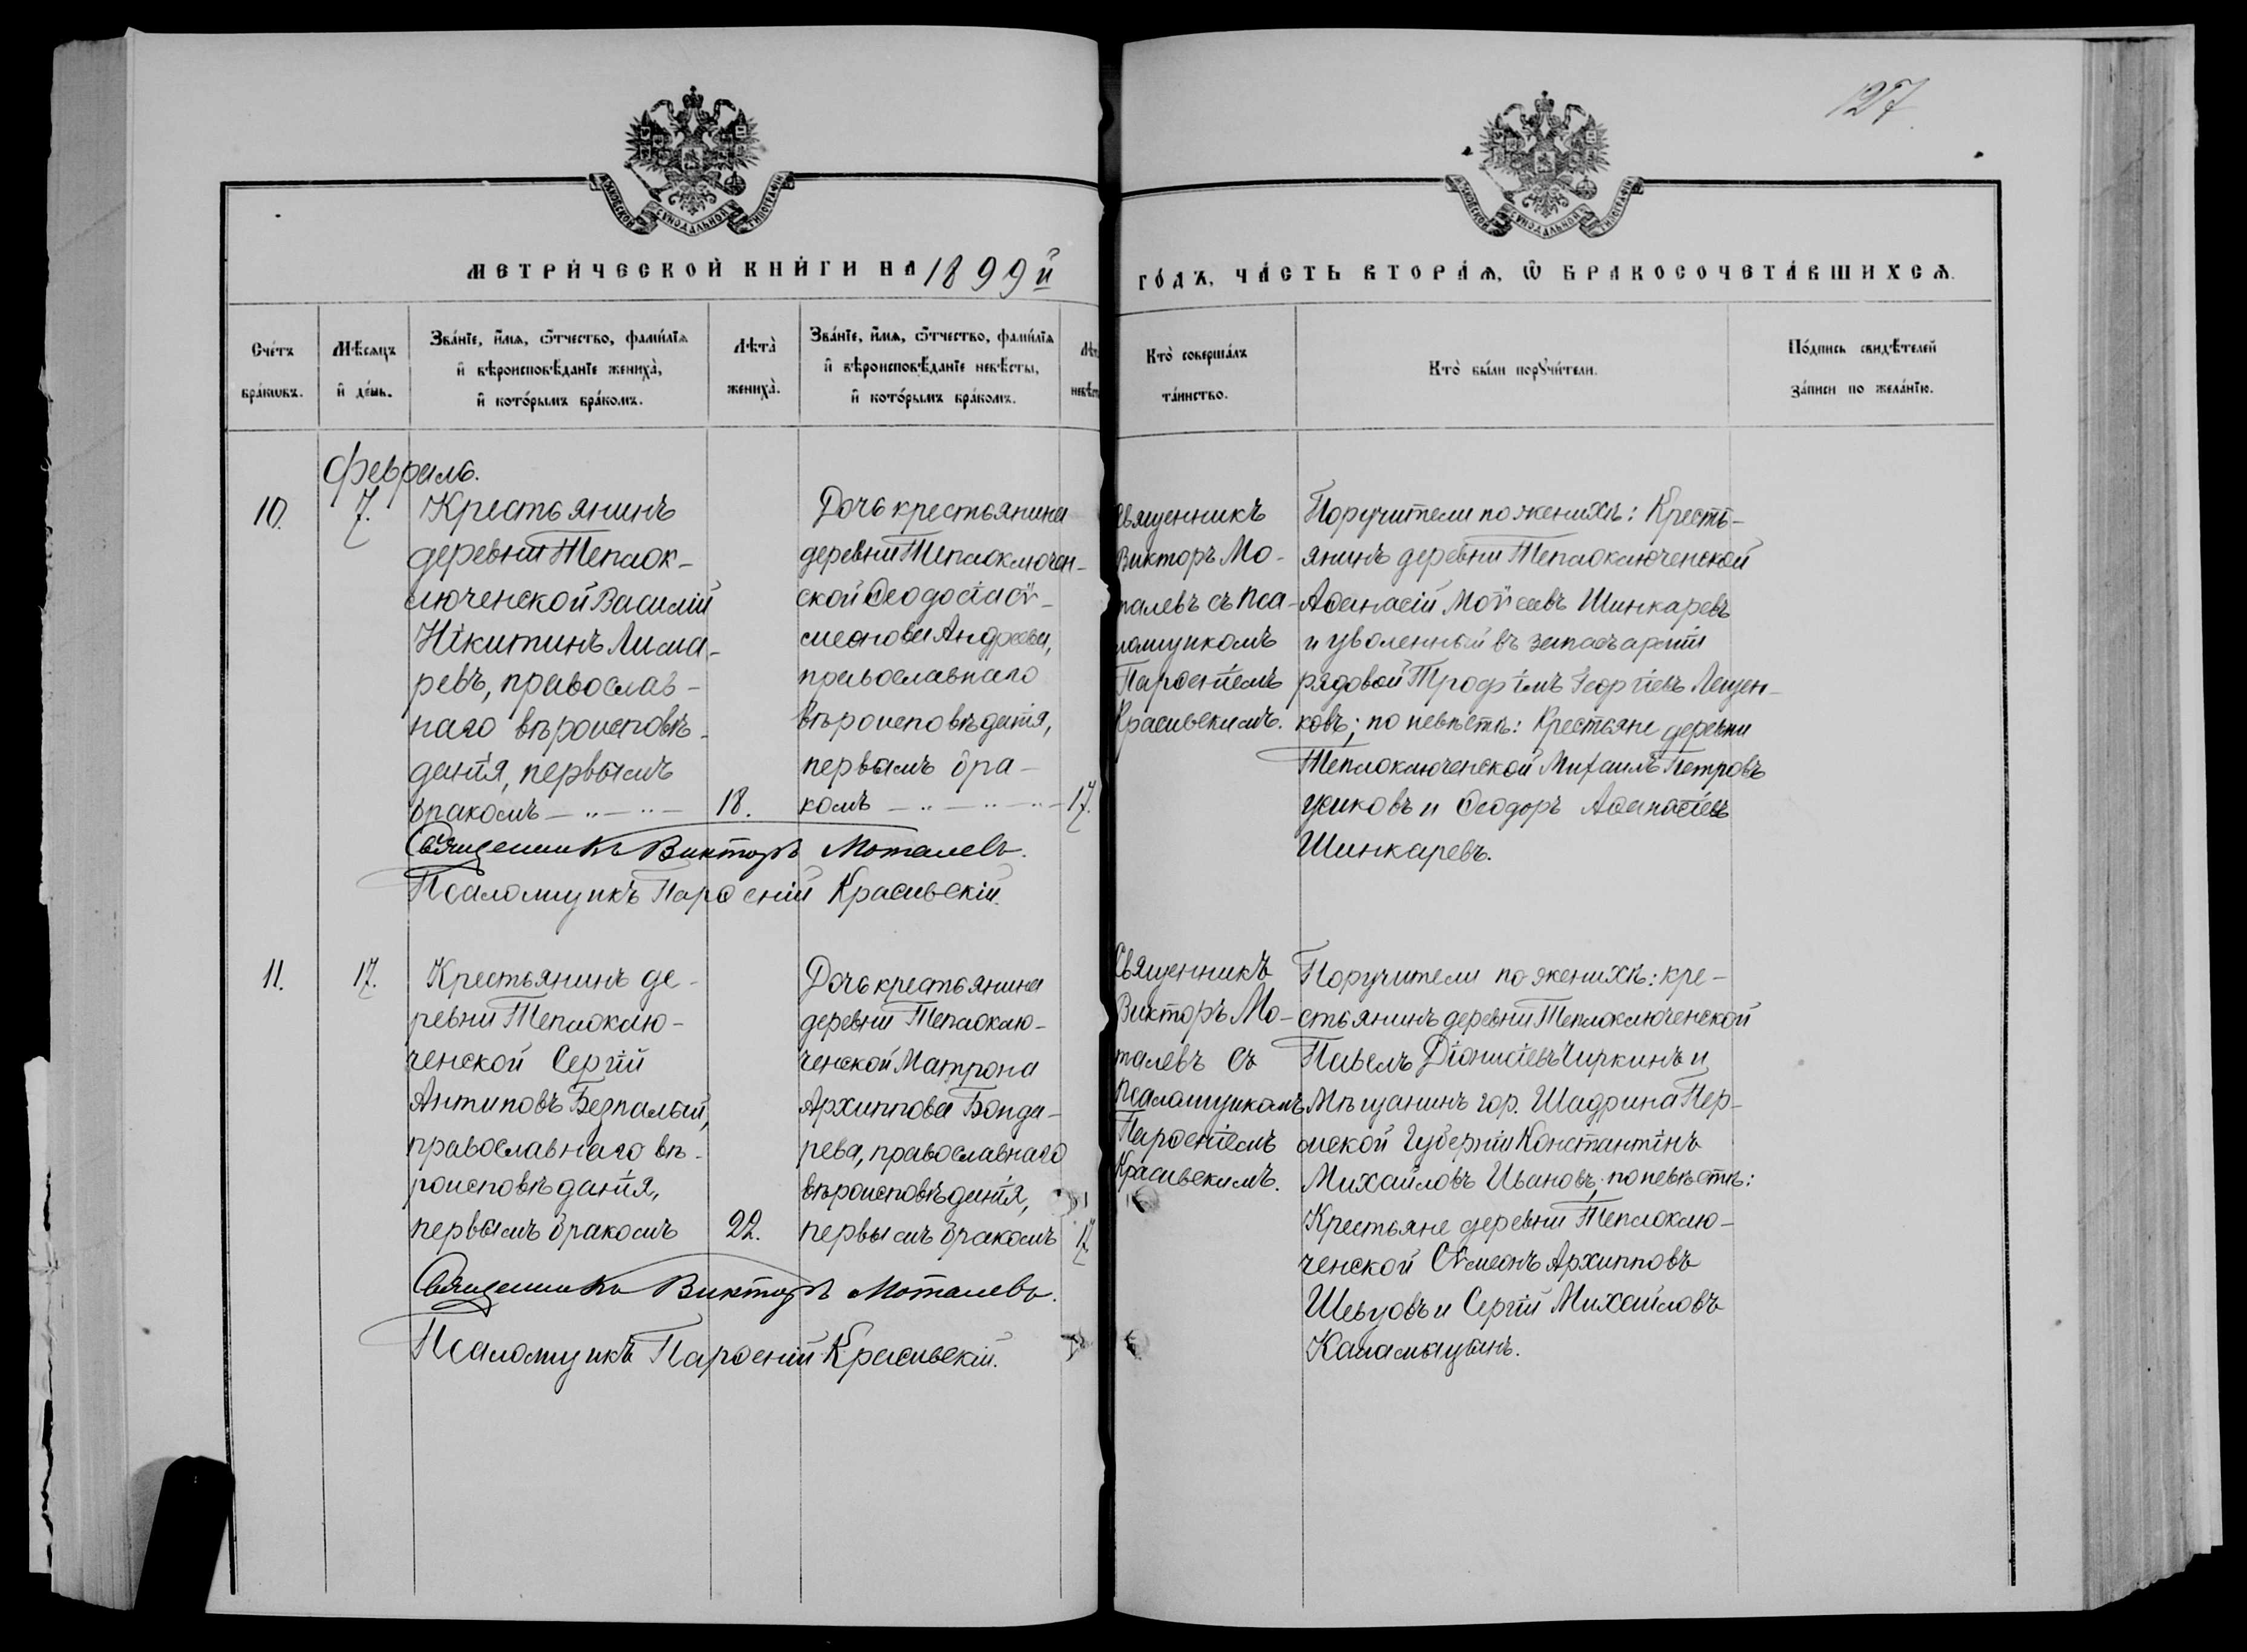 127
МОСКОВСКОЙ СѴНОДАЛЬНОЙ ТИПОГРАФІИ
МОСКОВСКОЙ СѴНОДАЛЬНОЙ ТИПОГРАФІИ
МЕТРИ́ЧЕСКОЙ КНИ́ГИ НА 1899й
ГО́ДЪ, ЧА́СТЬ ВТОРА́Ѧ, Ѽ БРАКОСОЧЕТА́ВШИХСѦ.
Сче́тъ
бра́кωвъ.
Мѣ́сѧцъ
и҆ де́нь.
Зва́нїе, и҆́мѧ, ѻ҆́тчество, фами́лїѧ
и҆ вѣроисповѣ́данїе жениха̀,
и҆ кото́рымъ бра́комъ.
Лѣта̀
жениха̀.
Зва́нїе, и҆́мѧ, ѻ҆́тчество, фами́лїѧ
и҆ вѣроисповѣ́данїе невѣ́сты,
и҆ кото́рымъ бра́комъ.
Лѣт
невѣст
Кто̀ соверша́лъ
та́инство.
Кто̀ бы́ли порꙋчи́тели.
По́дпись свидѣ́телей
за́писи по жела́нїю.
Февраль.
10.
7.
Крестьянинъ
деревни Теплок-
люченской Василій
Нікитинъ Лима-
ревъ, православ-
наго вѣроисповѣ-
данія, первымъ
бракомъ — „ — „ —
18.
Дочь крестьянина
деревни Теплоключен-
ской Ѳеодосія Сѵ-
меонова Андреева,
православнаго
вѣроисповѣданія,
первымъ бра-
комъ — „ — „ — „ —
17.
Священникъ
Викторъ Мо-
талевъ съ Пса-
ломщикомъ
Парѳеніемъ
Красивскимъ.
Поручители по женихѣ: Кресть-
янинъ деревни Теплоключенской
Аѳанасій Моѵсеевъ Шинкаревъ
и уволенный въ запасъ арміи
рядовой Трофімъ Георгіевъ Лещен-
ковъ; по невѣстѣ: Крестьяне деревни
Теплоключенской Михаилъ Петровъ
и Ѳеодоръ Аѳанасіевъ
Шинкаревъ.
Священникъ Викторъ Моталевъ.
Псаломщикъ Парѳеній Красивскій.
11.
17.
Крестьянинъ де-
ревни Теплоклю-
ченской Сергій
Антиповъ Безпалый,
православнаго вѣ-
роисповѣданія,
первымъ бракомъ
22.
Дочь крестьянина
деревни Теплоклю-
ченской Матрона
Архиппова Бонда-
рева, православнаго
вѣроисповѣданія,
первымъ бракомъ
17.
Священникъ
Викторъ Мо-
талевъ съ
Псаломщикомъ
Парѳеніемъ
Красивскимъ.
Поручители по женихѣ: кре-
стьянинъ деревни Теплоключенской
Павелъ Діонисіевъ Чиркинъ и
Мѣщанинъ гор. Шадрина Пер-
мской Губерніи Константінъ
Михайловъ Ивановъ; по невѣстѣ:
Крестьяне деревни Теплоклю-
ченской Сѵмеонъ Архипповъ
Шевцовъ и Сергій Михайловъ
Каламыцынъ.
Священникъ Викторъ Моталевъ.
Псаломщикъ Парѳеній Красивскій.